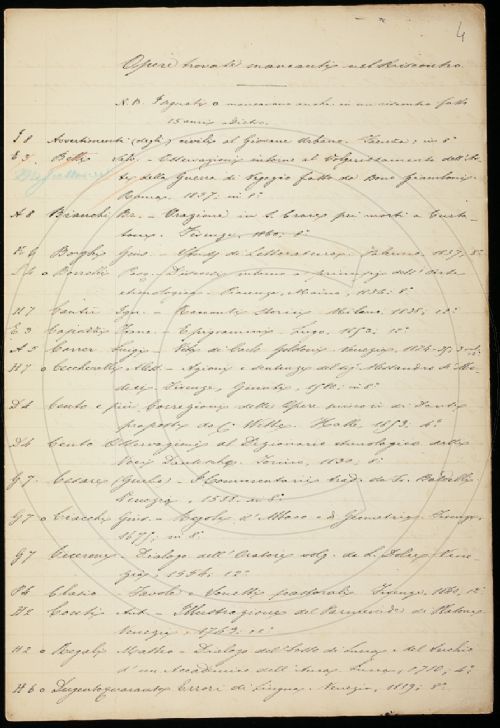 4
Opere trovate mancanti nel Riscontro
N.B. I segnati o mancavano anche in un riscontro fatto
15 anni dietro.
I 8 Avvertimenti (degli) civili al Giovane Urbano. in 8°
E 3. Betti Salv. - Osservazioni intorno al Volgarizzamento dell'Ar-
te della Guerra di Vegezio fatto da Bono Giamboni.
Roma. 1837; in 8°
A 8 Bianchi Br. - Orazione in S. Croce pei morti a Curta-
tone. Firenze, 1860; 8°
Borghi Gius. - Studj di Letteratura. Palermo, 1837; 8°
o Intorno a principj dell'Arte
etimologica. Firenze, 1834; 8°
H 7 Cantù Ign. - Racconti storici. Milano, 1838; 12°
E 3 Epigrammi. 1853; 12°
A 5 Carrer Luigi - Vita di Carlo Goldoni. Venezia, 1824-25; 3 vol.
12°
H 7 o Ceccherelli Aless. - Azioni e sentenze del Sig. Alessandro de' Me-
dici. Firenze, Giunti, 1580; in 8°
D 4 Cento e più Correzioni delle Opere minori di Dante
proposte da C. Witte. Halle, 1853; 4°
D 4 Cento Osservazioni al Dizionario etimologico delle
Voci Dantesche. Torino, 1830; 8°
G 7. Cesare (Giulio) - I Commentarii trad. da F. Baldelli
Venezia, 1558. in 8°
G 7 o Ciacchi Gius. - Regole d'Abbaco e di Geometria. Firenze,
1675; in 8°
G 7 Cicerone. - Dialogo dell'Oratore volg. da L. Dolce. Vene-
zia, 1554; 12°
Clasio - Favole e Sonetti pastorali. Firenze, 1860; 12°
H 2 Conti Ant. - Illustrazione del Parmenide di Platone
Venezia, 1743;
H 2 o Regali Matteo - Dialogo del Fosso di Lucca e del Serchio
d'un Accademico dell'Anca. Lucca, 1710; 4°
H 6 o Dugentoquaranta Errori di lingua. Venezia, 1839; 8°